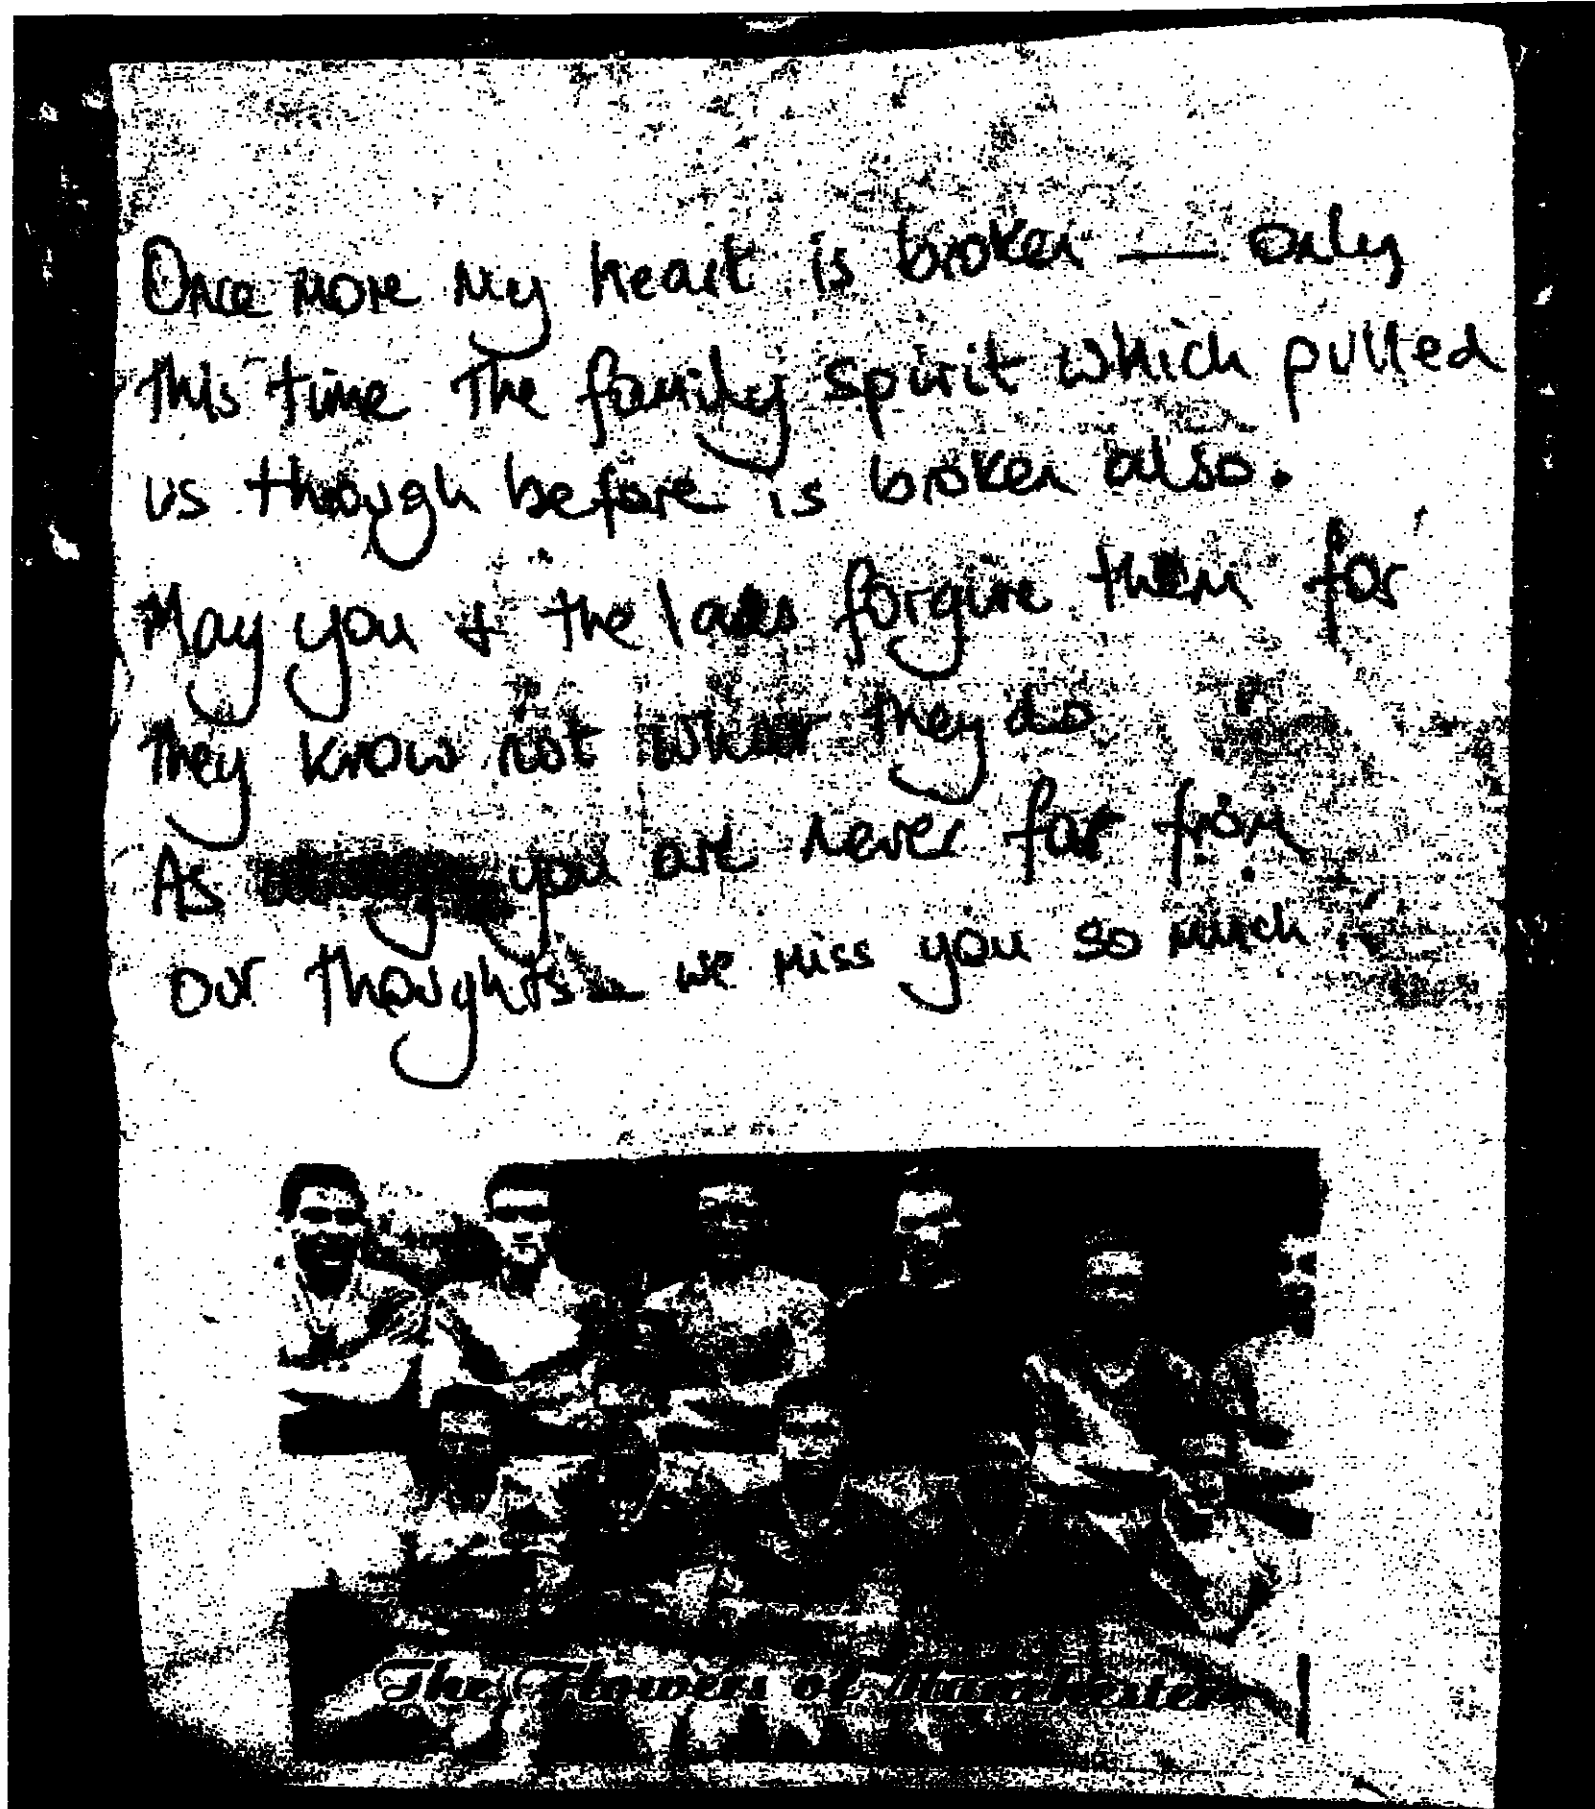 Once more my heart is broken — only
this time the family spirit which pulled
us though before is broken also.
May you & the lads forgive them for
they know not what they do
As you are never far from
our thoughts — we miss you so much
The Flowers of Manchester